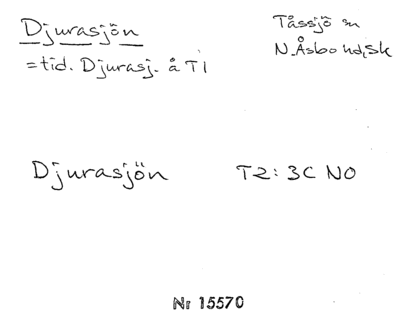 Djurasjön
Tåssjö sn
= tid. Djurasj. å T1
N. Åsbo hd, Sk
Djurasjön T2: 3C NO
Nr 15570